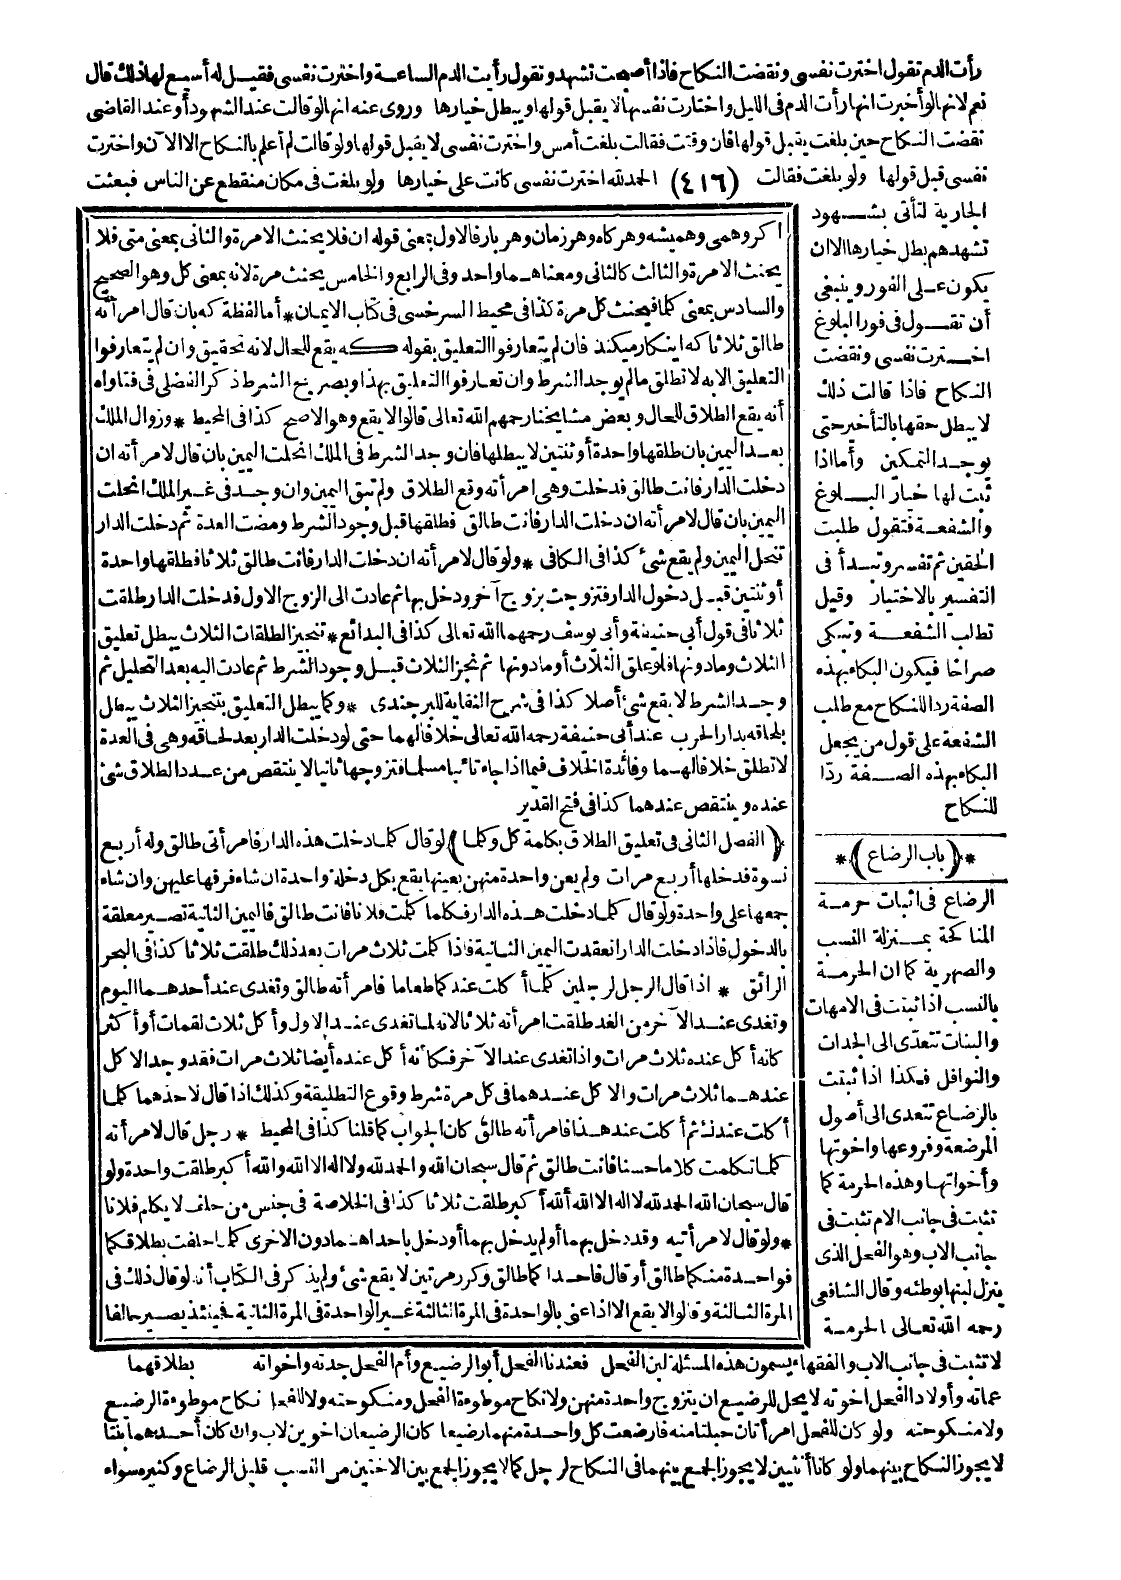 رأت الدم تقول اخترت نفسى ونقضت النكاح فاذا أصبحت تشهد وتقول رأيت الدم الساعة واخترت نفسى فقيل له أيسع لها ذلك قال
نعم لانها لو أخبرت انها رأت الدم فى الليل واختارت نفسها لا يقبل قولها ويبطل خيارها وروى عنه انها لو قالت عند الشهود أو عند القاضى
نقضت النكاح حين بلغت يقبل قولها فان وقتت فقالت بلغت أمس واخترت نفسى لا يقبل قولها ولو قالت لم أعلم بالنكاح الا الآن واخترت
نفسى قبل قولها ولو بلغت فقالت (٤١٦) الحمد لله اخترت نفسى كانت على خيارها ولو بلغت فى مكان منقطع عن الناس فبعثت
الجارية لتأتى بشهود
تشهدهم بطل خيارها الا ان
يكون على الفور وينبغى
أن تقول فى فور البلوغ
اخترت نفسى ونقضت
النكاح فاذا قالت ذلك
لا يبطل حقها بالتأخير حتى
يوجد التمكين وأما اذا
ثبت لها خيار البلوغ
والشفعة فتقول طلبت
الحقين ثم تفسر وتبدأ فى
التفسير بالاختيار وقيل
تطالب الشفعة وتبكى
صراخا فيكون البكاء بهذه
الصفة ردا للنكاح مع طلب
الشفعة على قول من يجعل
البكاء بهذه الصفة ردّا
للنكاح
*(باب الرضاع)*
الرضاع فى اثبات حرمة
المناكحة بمنزلة النسب
والصهرية كما ان الحرمة
بالنسب اذا ثبتت فى الامهات
والبنات تتعدّى الى الجدات
والنوافل فكذا اذا ثبتت
بالرضاع تتعدى الى أصول
المرضعة وفروعها واخوتها
وأخواتها وهذه الحرمة كما
تثبت فى جانب الام تثبت فى
جانب الاب وهو الفحل الذى
ينزل لبنها بوطئه وقال الشافعى
رحمه الله تعالى الحرمة
اكر وهمى وهميشه وهركاه وهرزمان وهربار فالاول بمعنى قوله ان فلا يحنث الا مرة والثانى بمعنى متى فلا
يحنث الا مرة والثالث كالثانى ومعناهما واحد وفى الرابع والخامس يحنث مرة لانه بمعنى كل وهو الصحيح
والسادس بمعنى كلما فيحنث كل مرة كذا فى محيط السرخسى فى كتاب الايمان * أما لفظة كه بان قال امرأته
طالق ثلاثا كه اينكار ميكند فان لم يتعارفوا التعليق بقوله كه يقع للحال لانه تحقيق وان لم يتعارفوا
التعليق الا به لا تطلق ما لم يوجد الشرط وان تعارفوا التعليق بهذا وبصريح الشرط ذكر الفضلى فى فتاواه
أنه يقع الطلاق للحال وبعض مشايخنا رحمهم الله تعالى قالوا لا يقع وهو الاصح كذا فى المحيط * وزوال الملك
بعد اليمين بان طلقها واحدة أو ثنتين لا يبطلها فان وجد الشرط فى الملك انحلت اليمين بان قال لامرأته ان
دخلت الدار فانت طالق فدخلت وهى امرأته وقع الطلاق ولم تبق اليمين وان وجد فى غير الملك انحلت
اليمين بان قال لامرأته ان دخلت الدار فانت طالق فطلقها قبل وجود الشرط ومضت العدة ثم دخلت الدار
تنحل اليمين ولم يقع شئ كذا فى الكافى * ولو قال لامرأته ان دخلت الدار فانت طالق ثلاثا فطلقها واحدة
أو ثنتين قبل دخول الدار فتزوجت بزوج آخر ودخل بها ثم عادت الى الزوج الاول فدخلت الدار طلقت
ثلاثا فى قول أبى حنيفة وأبى يوسف رحمهما الله تعالى كذا فى البدائع * تنجيز الطلقات الثلاث يبطل تعليق
الثلاث وما دونها فلو علق الثلاث أو ما دونها ثم نجز الثلاث قبل وجود الشرط ثم عادت اليه بعد التحليل ثم
وجد الشرط لا يقع شئ أصلا كذا فى شرح النقاية للبرجندى * وكما يبطل التعليق بتنجيز الثلاث يبطل
بلحاقه بدار الحرب عند أبى حنيفة رحمه الله تعالى خلافا لهما حتى لو دخلت الدار بعد لحاقه وهى فى العدة
لا تطلق خلافا لهما وفائدة الخلاف فيما اذا جاء تائبا مسلما فتزوجها ثانيا لا ينتقص من عدد الطلاق شئ
عنده وينتقص عندهما كذا فى فتح القدير
(الفصل الثانى فى تعليق الطلاق بكلمة كل وكلما) لو قال كلما دخلت هذه الدار فامرأتى طالق وله أربع
نسوة فدخلها أربع مرات ولم يعن واحدة منهن بعينها يقع بكل دخلة واحدة ان شاء فرقها عليهن وان شاء
جمعها على واحدة ولو قال كلما دخلت هذه الدار فكلما كلمت فلانا فانت طالق فاليمين الثانية تصير معلقة
بالدخول فاذا دخلت الدار انعقدت اليمين الثانية فاذا كلمت ثلاث مرات بعد ذلك طلقت ثلاثا كذا فى البحر
الرائق * اذا قال الرجل لرجلين كلما أكلت عندكما طعاما فامرأته طالق وتغدى عند أحدهما اليوم
وتغدى عند الآخر من الغد طلقت امرأته ثلاثا لانه لما تغدى عند الاول وأكل ثلاث لقمات أو أكثر
كانه أكل عنده ثلاث مرات واذا تغدى عند الآخر فكأنه أكل عنده أيضا ثلاث مرات فقد وجد الاكل
عندهما ثلاث مرات والاكل عندهما فى كل مرة شرط وقوع التطليقة وكذلك اذا قال لاحدهما كلما
أكلت عندك ثم أكلت عند هذا فامرأته طالق كان الجواب كما قلنا كذا فى المحيط * رجل قال لامرأته
كلما تكلمت كلاما حسنا فانت طالق ثم قال سبحان الله والحمد لله ولا اله الا الله والله أكبر طلقت واحدة ولو
قال سبحان الله الحمد لله لا اله الا الله الله أكبر طلقت ثلاثا كذا فى الخلاصة فى جنس من حلف لا يكلم فلانا
* ولو قال لامرأتيه وقد دخل بهما أو لم يدخل بهما أو دخل باحداهما دون الاخرى كلما حلفت بطلاقكما
فواحدة منكما طالق أو قال فاحداكما طالق وكرر مرتين لا يقع شئ ولم يذكر فى الكتاب أنه لو قال ذلك فى
المرة الثالثة وقالوا لا يقع الا اذا عنى بالواحدة فى المرة الثالثة غير الواحدة فى المرة الثانية فحينئذ يصير حالفا
لا تثبت فى جانب الاب والفقهاء يسمون هذه المسئلة لبن الفحل فعندنا الفحل أبو الرضيع وأم الفحل جدته واخواته بطلاقهما
عماته وأولاد الفحل اخوته لا يحل للرضيع ان يتزوج واحدة منهن ولا نكاح موطوءة الفحل ومنكوحته ولا للفحل نكاح موطوءة الرضيع
ولا منكوحته ولو كان للفحل امرأتان حبلتا منه فارضعت كل واحدة منهما رضيعا كان الرضيعان اخوين لاب وان كان أحدهما بنتا
لا يجوز النكاح بينهما ولو كانا أنثيين لا يجوز الجمع بينهما فى النكاح لرجل كما لا يجوز الجمع بين الاختين من النسب قليل الرضاع وكثيره سواء